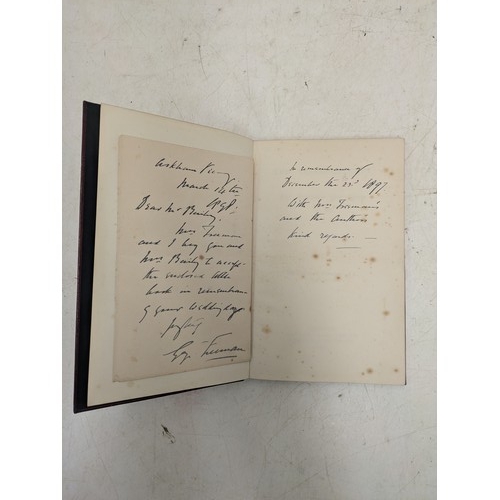 March 14th
1898.
Dear Mr Baily,
Mrs Freeman
and I beg you and
Mrs Baily to accept
the enclosed little
book in remembrance
of your Wedding day
Geo. Freeman
In remembrance of
December the 22nd 1897.
With Mrs Freeman's
and the Author's
kind regards